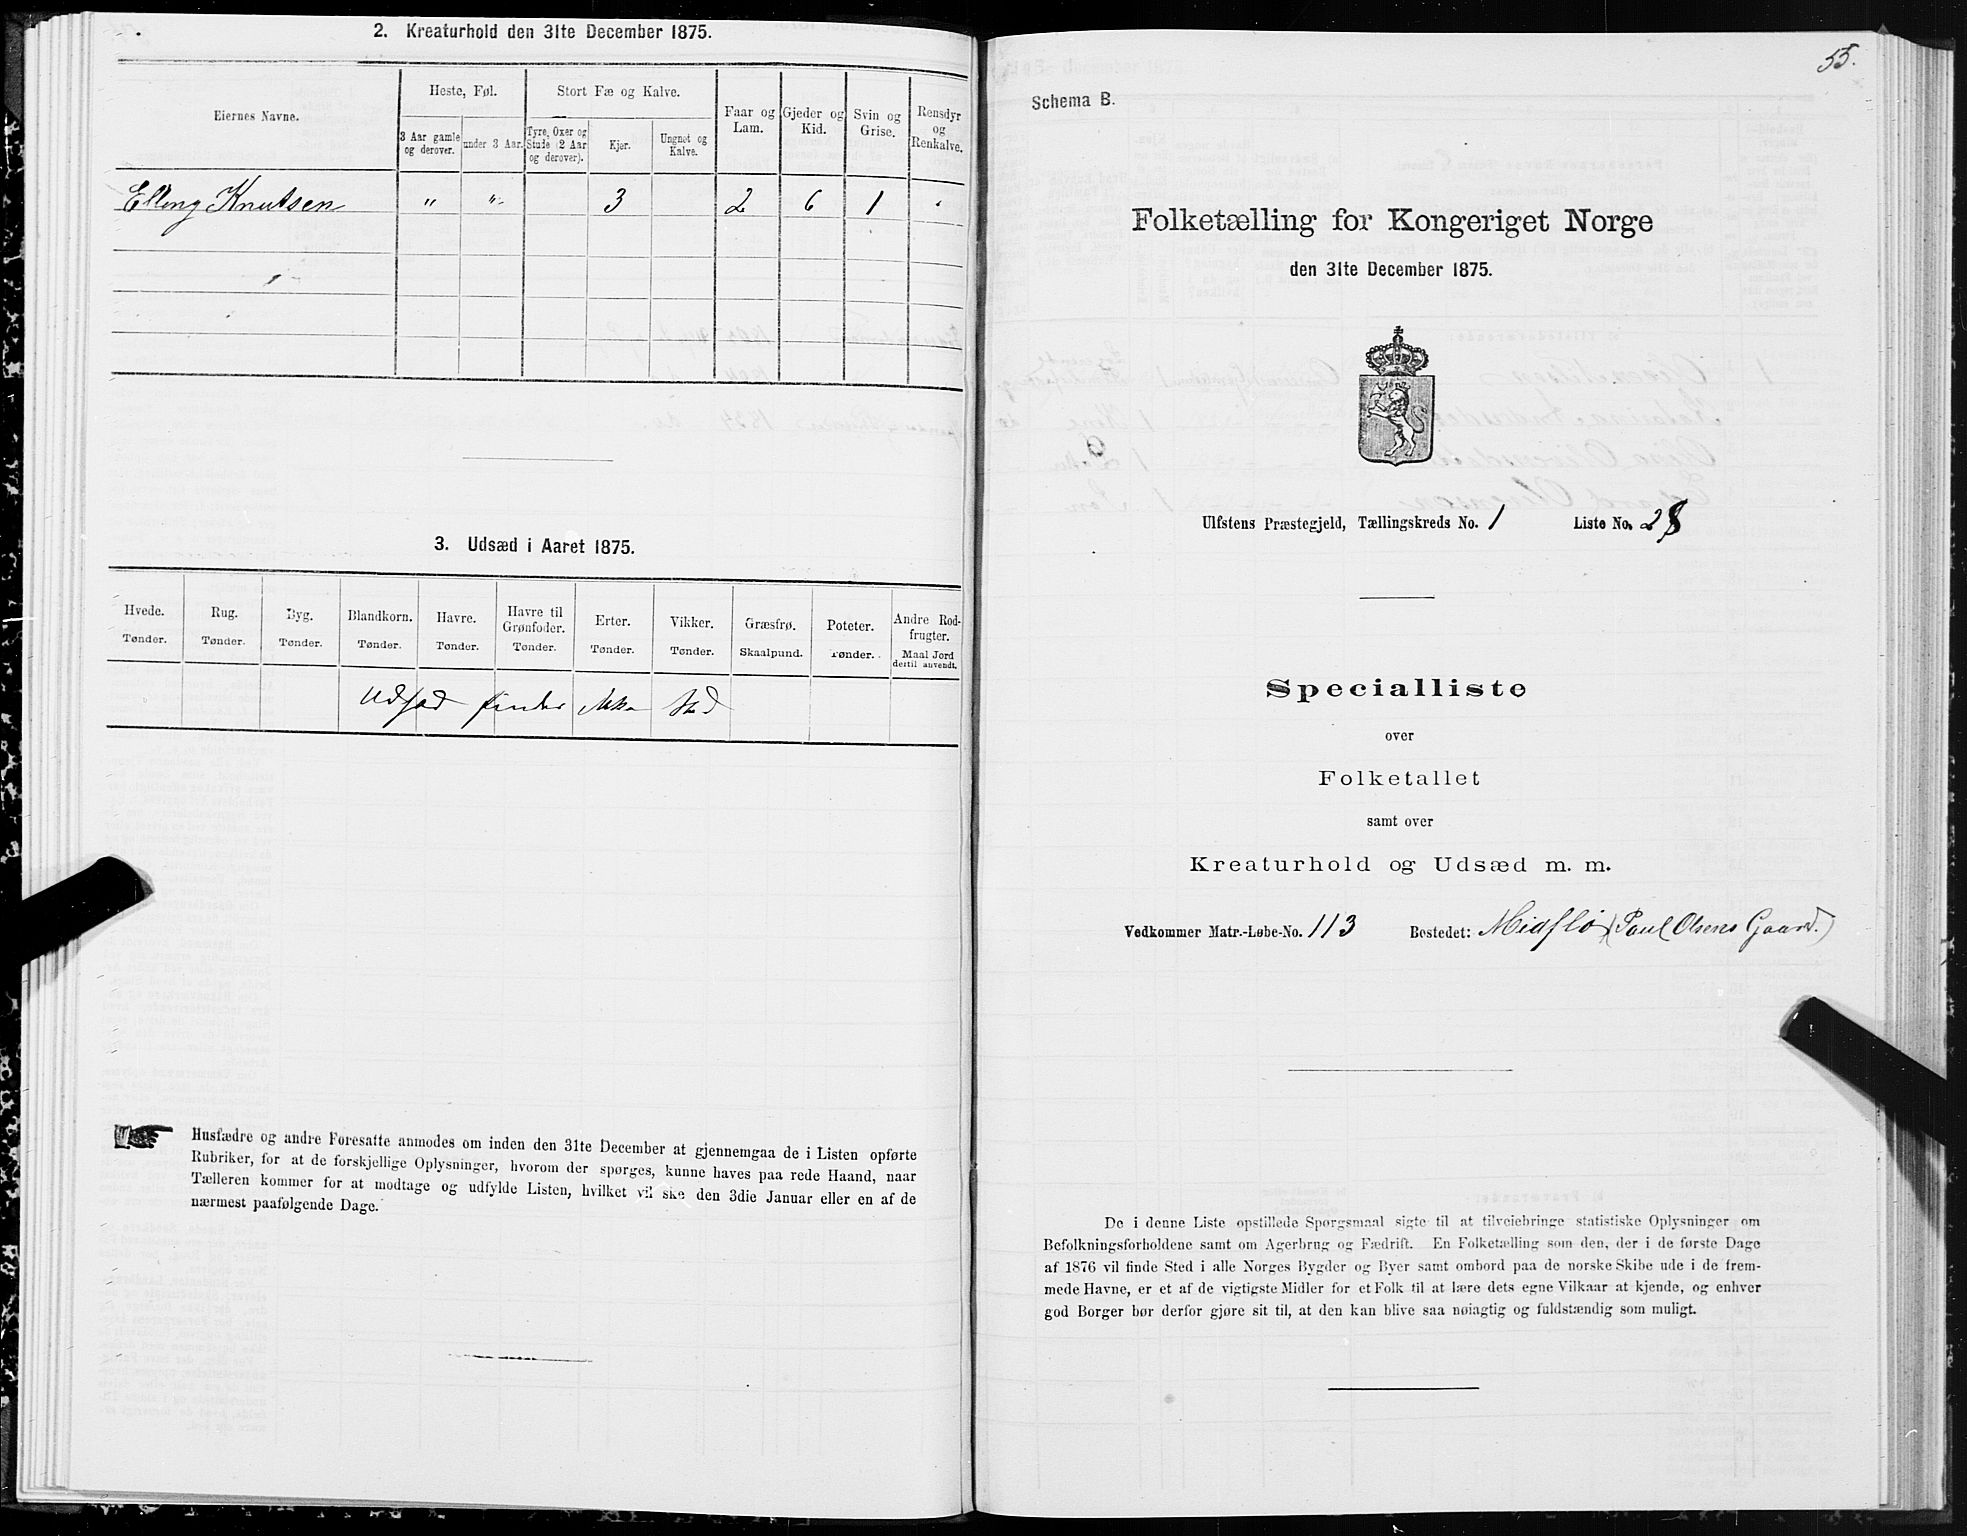 2. Kreaturhold den 31te December 1875.
Eiernes Navne.
Heste, Føl.
Stort Fæ og Kalve.
Faar og Lam.
Gjeder og Kid.
Svin og Grise.
Rensdyr og Renkalve.
3 Aar gamle og derover.
under 3 Aar.
Tyre, Oxer og Stude (2 Aar og derover).
Kjer.
Ungnet og Kalve.
Elling Knutsen " " 3 2 6 1 "
3. Udsæd i Aaret 1875.
Hvede. Tønder.
Rug. Tønder.
Byg. Tønder.
Blandkorn. Tønder.
Havre. Tønder.
Havre til Grønfoder. Tønder.
Erter. Tønder.
Vikker. Tønder.
Græsfrø. Skaalpund.
Poteter. Tønder.
Andre Rodfrugter. Maal Jord dertil anvendt.
Udsæd finder ikke Sted
Husfædre og andre Foresatte anmodes om inden den 31te December at gjennemgaa de i Listen opførte
Rubriker, for at de forskjellige Oplysninger, hvorom der spørges, kunne haves paa rede Haand, naar
Tælleren kommer for at modtage og udfylde Listen, hvilket vil ske den 3die Januar eller en af de
nærmest paafølgende Dage.
55.
Schema B.
Folketælling for Kongeriget Norge
den 31te December 1875.
Ulfstens Præstegjeld, Tællingskreds No. 1 Liste No. 28
Specialliste
over
Folketallet
samt over
Kreaturhold og Udsæd m. m.
Vedkommer Matr.-Løbe-No. 113 Bostedet: Midflø (Paul Olsens Gaard.)
De i denne Liste opstillede Spørgsmaal sigte til at tilveiebringe statistiske Oplysninger om
Befolkningsforholdene samt om Agerbrug og Fædrift. En Folketælling som den, der i de første Dage
af 1876 vil finde Sted i alle Norges Bygder og Byer samt ombord paa de norske Skibe ude i de frem-
mede Havne, er et af de vigtigste Midler for et Folk til at lære dets egne Vilkaar at kjende, og enhver
god Borger bør derfor gjøre sit til, at den kan blive saa nøiagtig og fuldstændig som muligt.